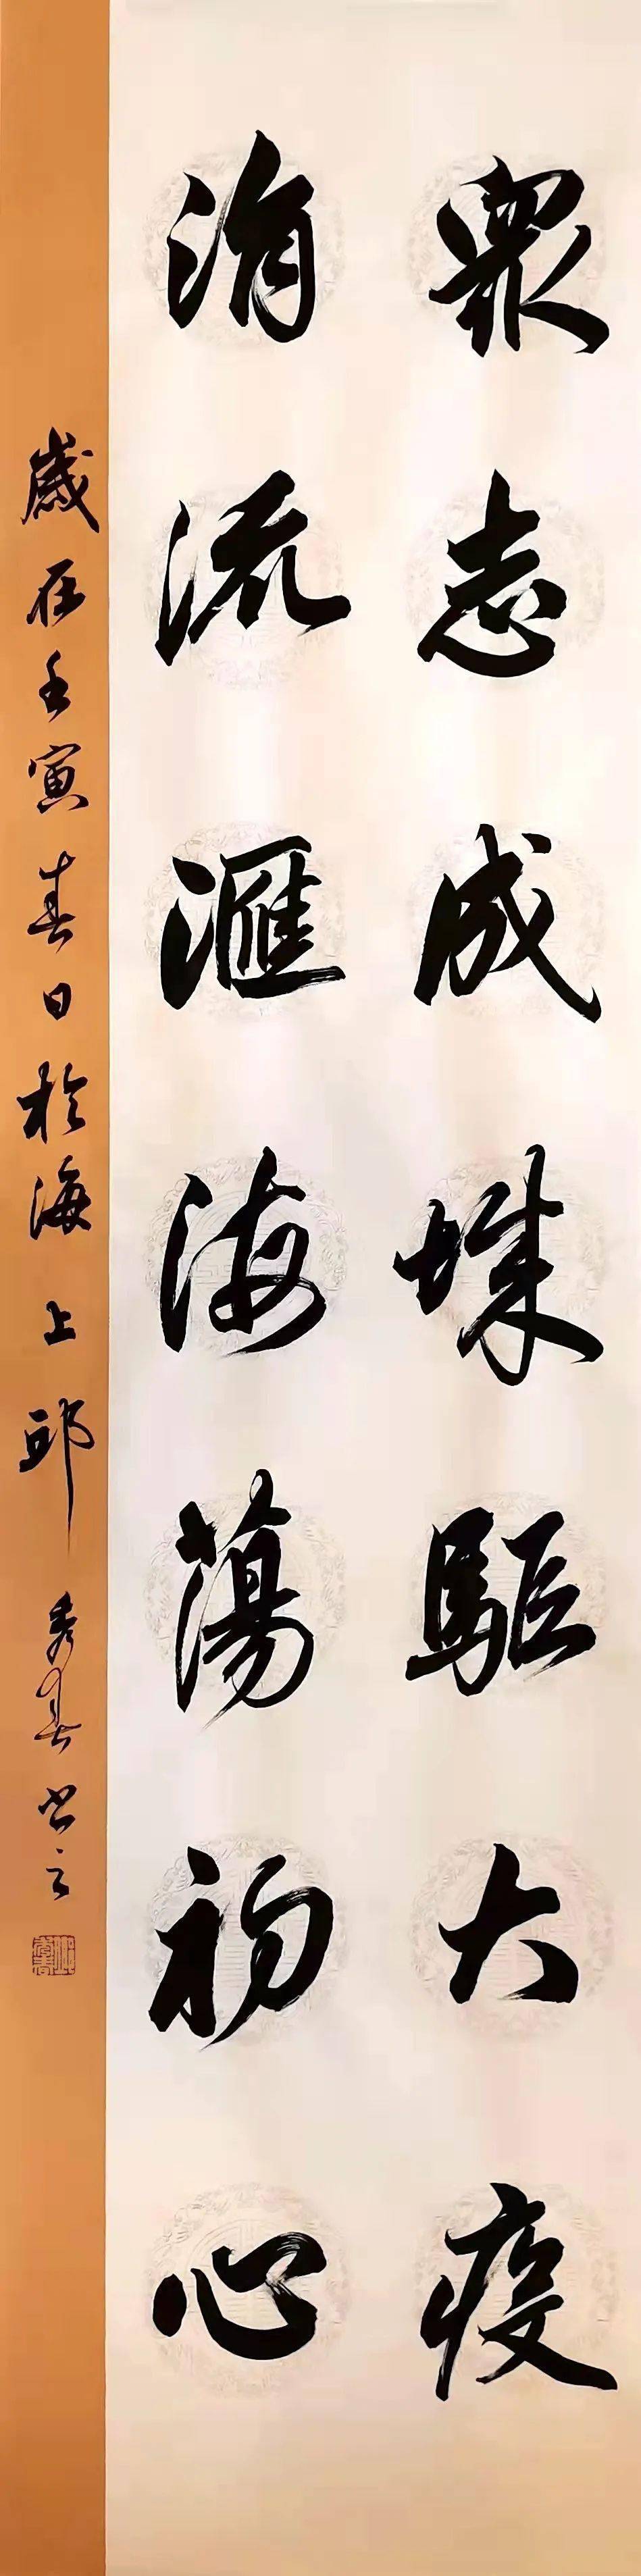 眾志成城驅大疫
涓流滙海蕩初心
歲在壬寅春日於海上邱秀春书之